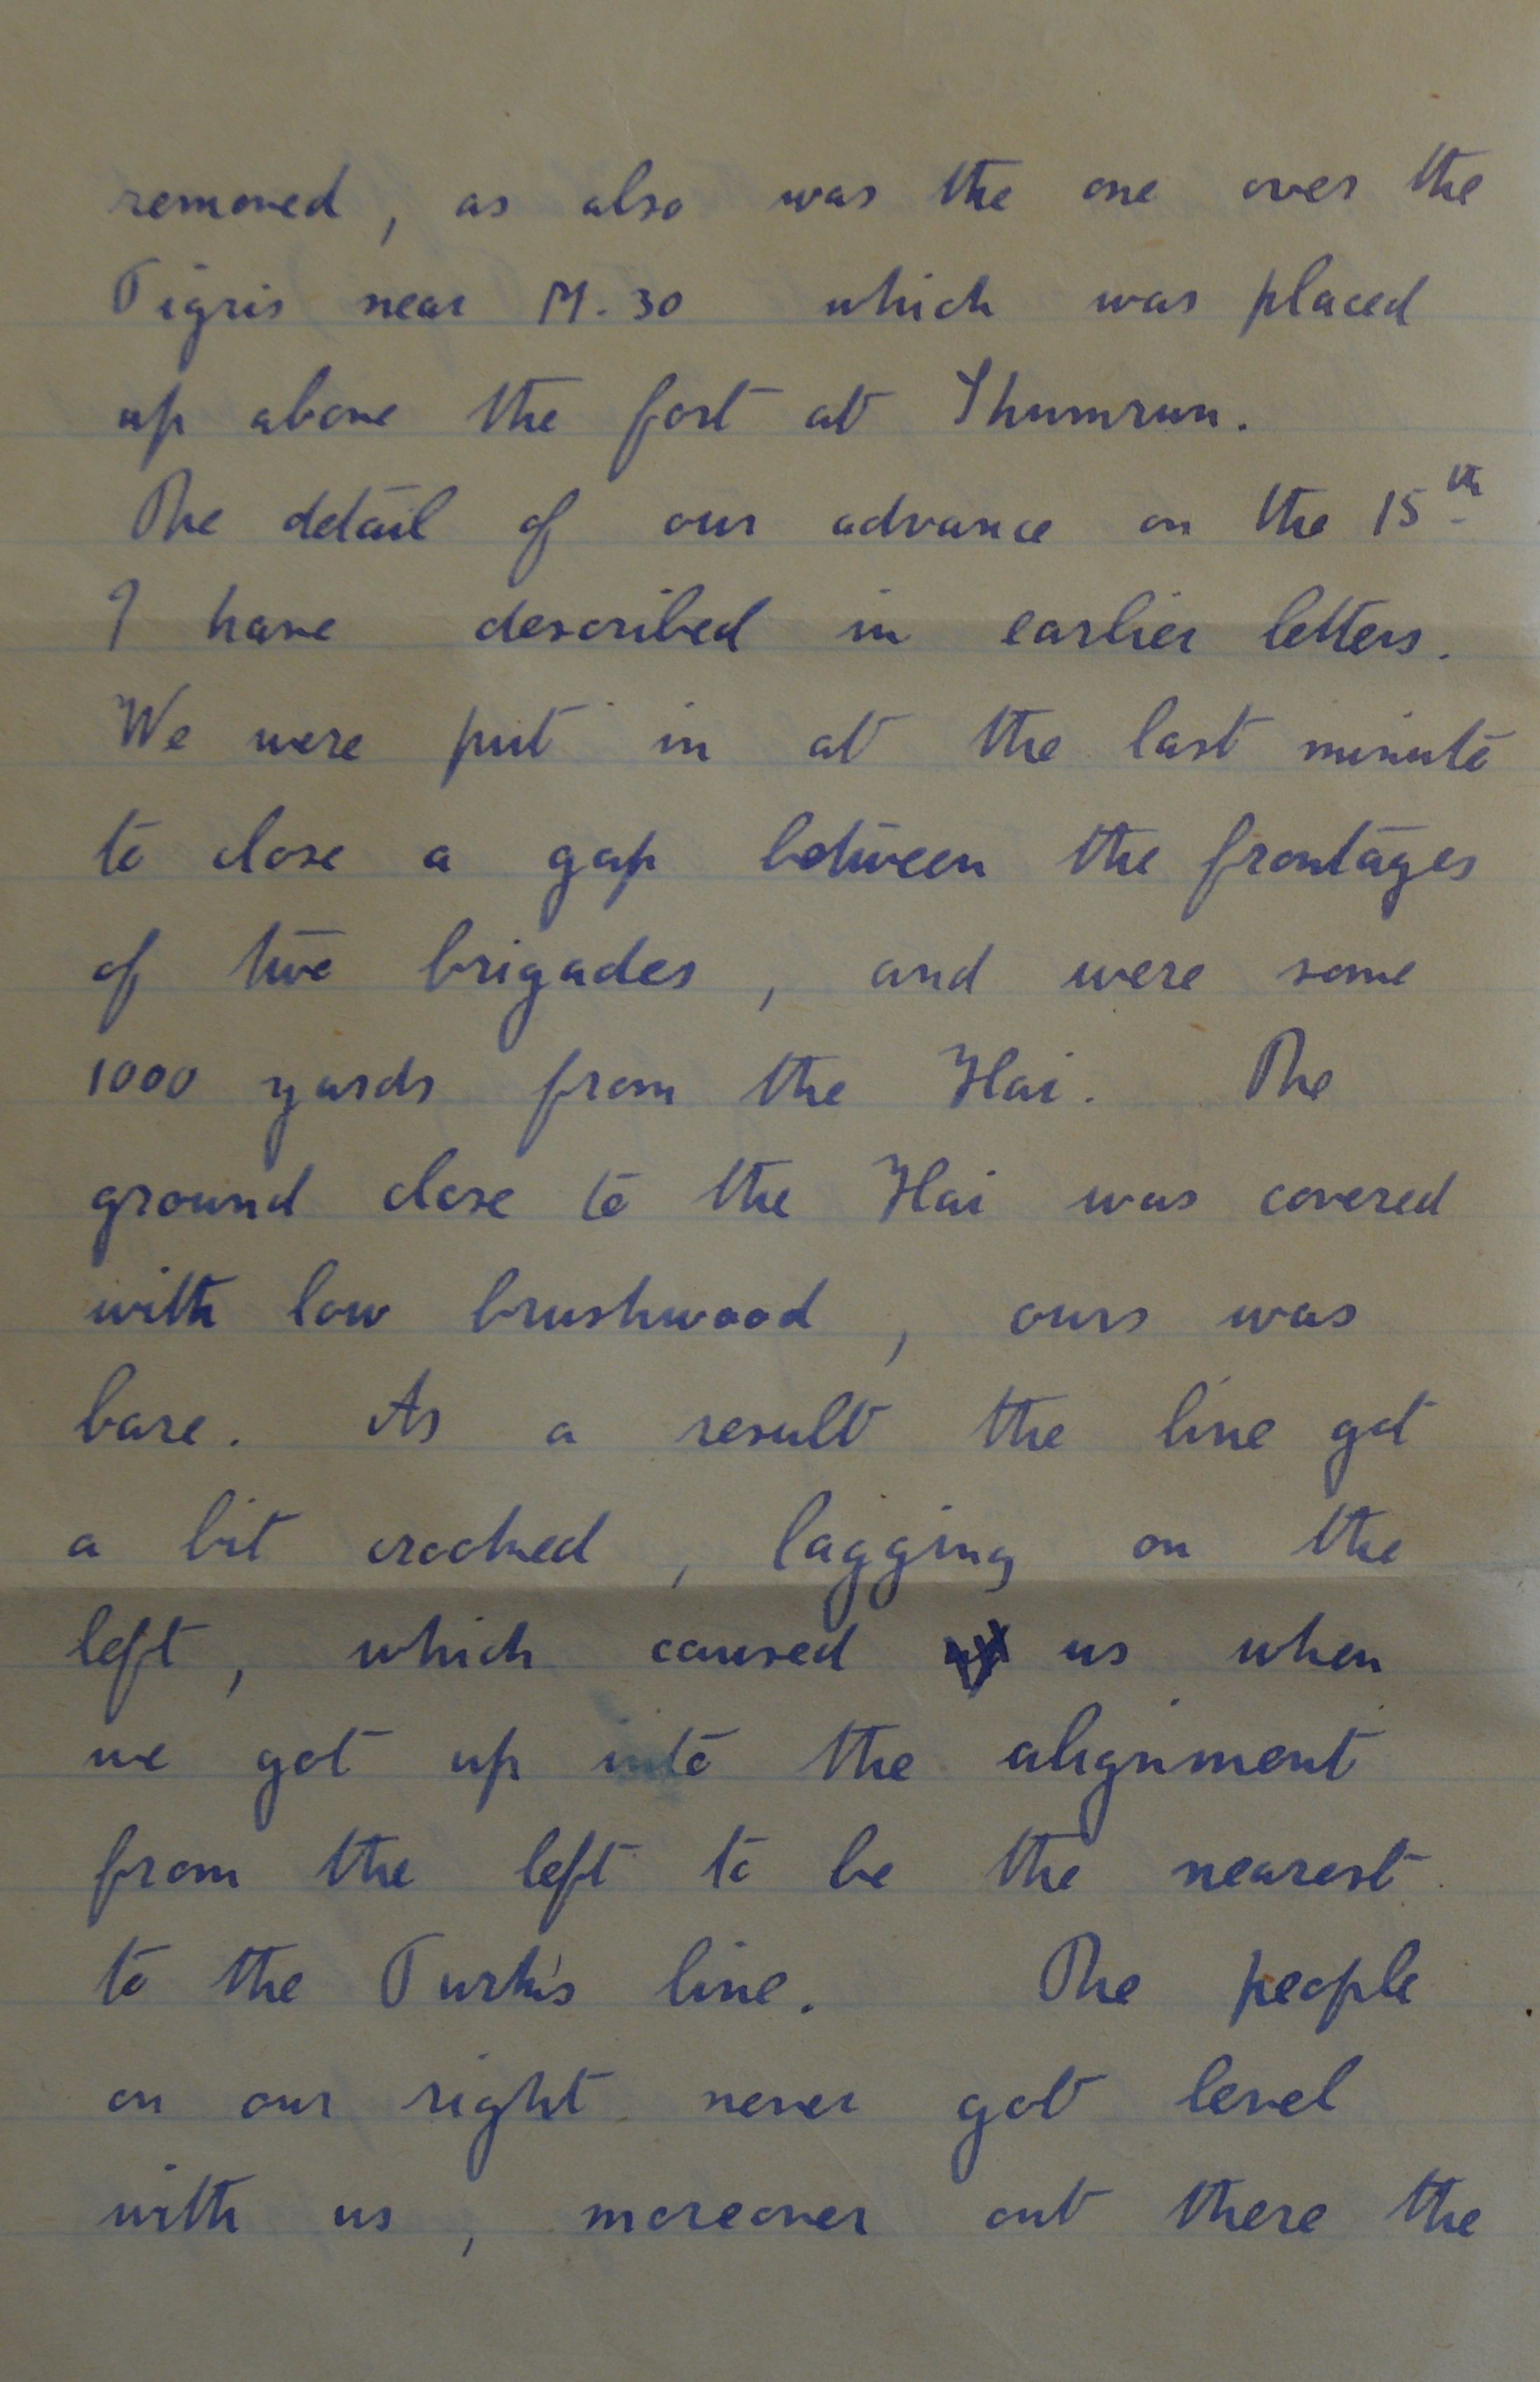 removed, as also was the one over the
Tigris near M.30 which was placed
up above the fort at Shumrun.
The detail of our advance on the 15th
I have described in earlier letters.
We were put in at the last minute
to close a gap between the frontages
of two brigades, and were some
1000 yards from the Hai. The
ground close to the Hai was covered
with low brushwood, ours was
bare. As a result the line got
a bit crooked, lagging on the
left, which caused us when
we got up into the alignment
from the left to be the nearest
to the Turk's line. The people
on our right never got level
with us, moreover out there the